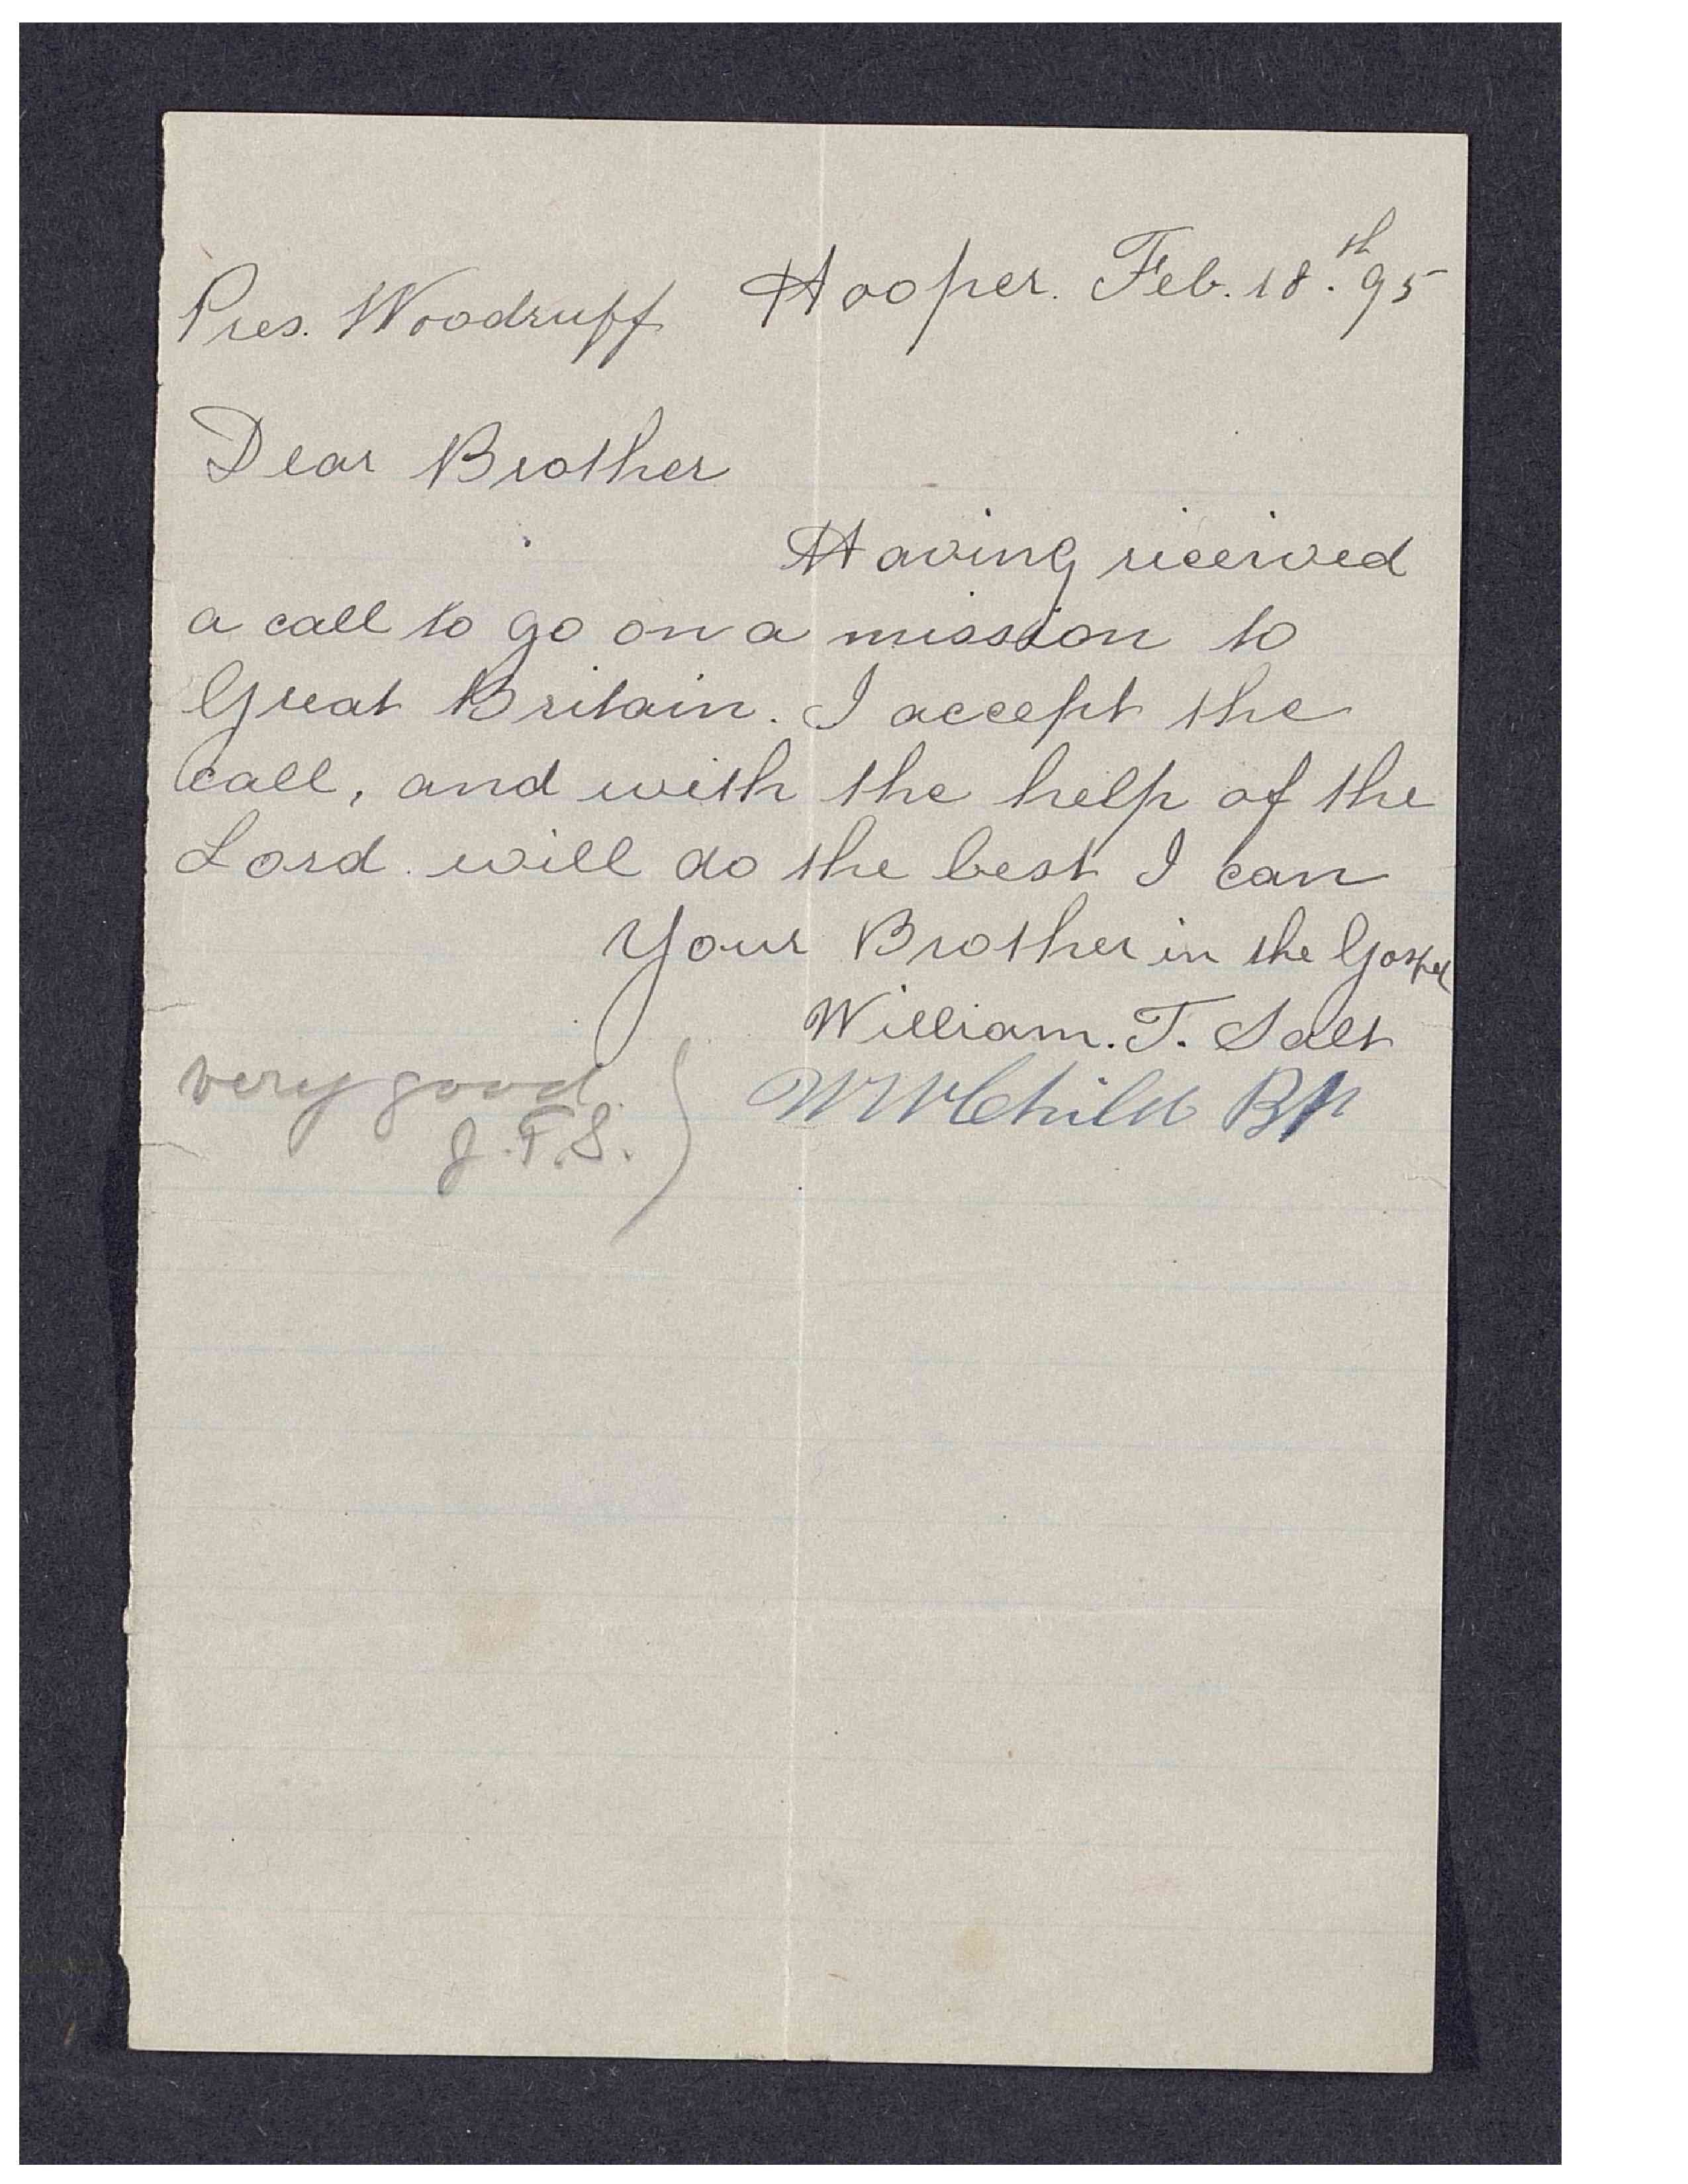 Hooper. Feb. 18.th 95
Pres. Woodruff
Dear Brother
Having recieved
a call to go on a mission to
Great Britain. I accept the
call, and with the help of the
Lord. will do the best I can
Your Brother in the Gospel
William. T. Salt
W W Child Bp
very good.
J.F.S.